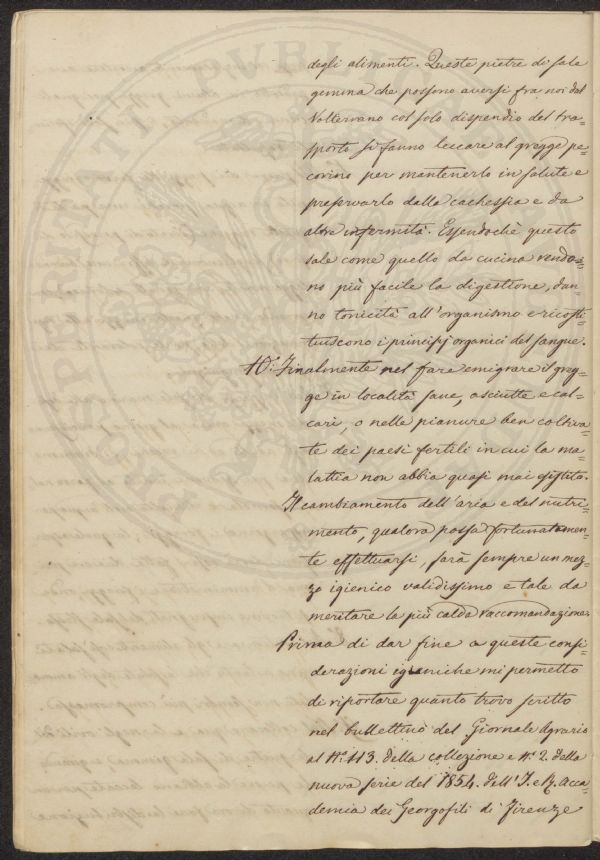 degli alimenti. Queste pietre di sale
gemma che possono aversi fra noi dal
Volterrano col solo dispendio del tra=
sporto si fanno leccare al gregge pe=
corino per mantenerlo in salute e
preservarlo dalla cachessia e da
altre infermità. Essendochè questo
sale come quello da cucina rendo=
no più facile la digestione, dan
no tonicità all'organismo e ricosti=
tuiscono i principj organici del sangue.
10.° Finalmente nel fare emigrare il greg=
ge in località sane, asciutte e cal=
cari, o nelle pianure ben coltiva=
te dei paesi fertili in cui la ma=
lattia non abbia quasi mai esistito.
Il cambiamento dell'aria e del nutri=
mento, qualora possa fortunatamen=
te effettuarsi, sarà sempre un mez=
zo igienico validissimo e tale da
meritare la più calda raccomandazione.
Prima di dar fine a queste consi=
derazioni igieniche mi permetto
di riportare quanto trovo scritto
nel bullettino del Giornale Agrario
al N.° 113. della collezione e N.° 2. della
nuova serie del 1854. dell'I. e R. Acca=
demia dei Georgofili di Firenze
PROSPERITATI